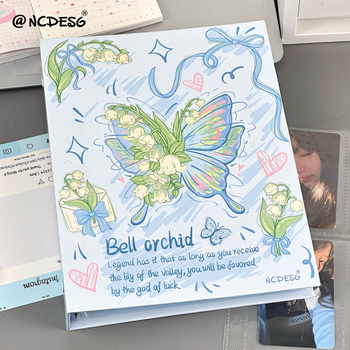 @NCDESG®
Bell orchid
Legend has it that as long as you receive
the lily of the valley, you will be favored
by the god of luck
NCDESG®
Instagram